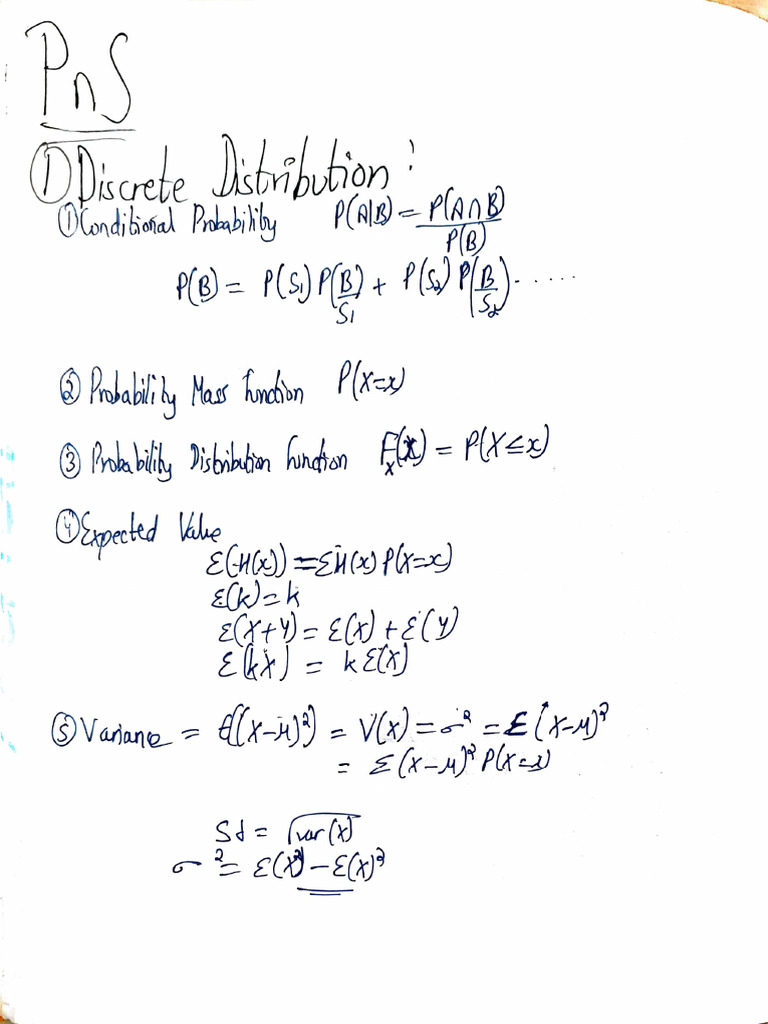 PnS
① Discrete Distribution :
① Conditional Probability P(A|B) = P(A∩B)/P(B)
P(B) = P(S₁) P(B/S₁) + P(S₂) P(B/S₂) ......
② Probability Mass function P(X=x)
③ Probability Distribution function Fₓ(x) = P(X≤x)
④ Expected Value
Ɛ(H(x)) = ΣH(x) P(X=x)
Ɛ(k) = k
Ɛ(X+Y) = Ɛ(X) + Ɛ(Y)
Ɛ(kX) = kƐ(X)
⑤ Variance = Ɛ((X-μ)²) = V(X) = σ² = Ɛ(X-μ)²
= Σ(X-μ)² P(X=x)
Sd = √var(X)
σ² = Ɛ(X²) - Ɛ(X)²